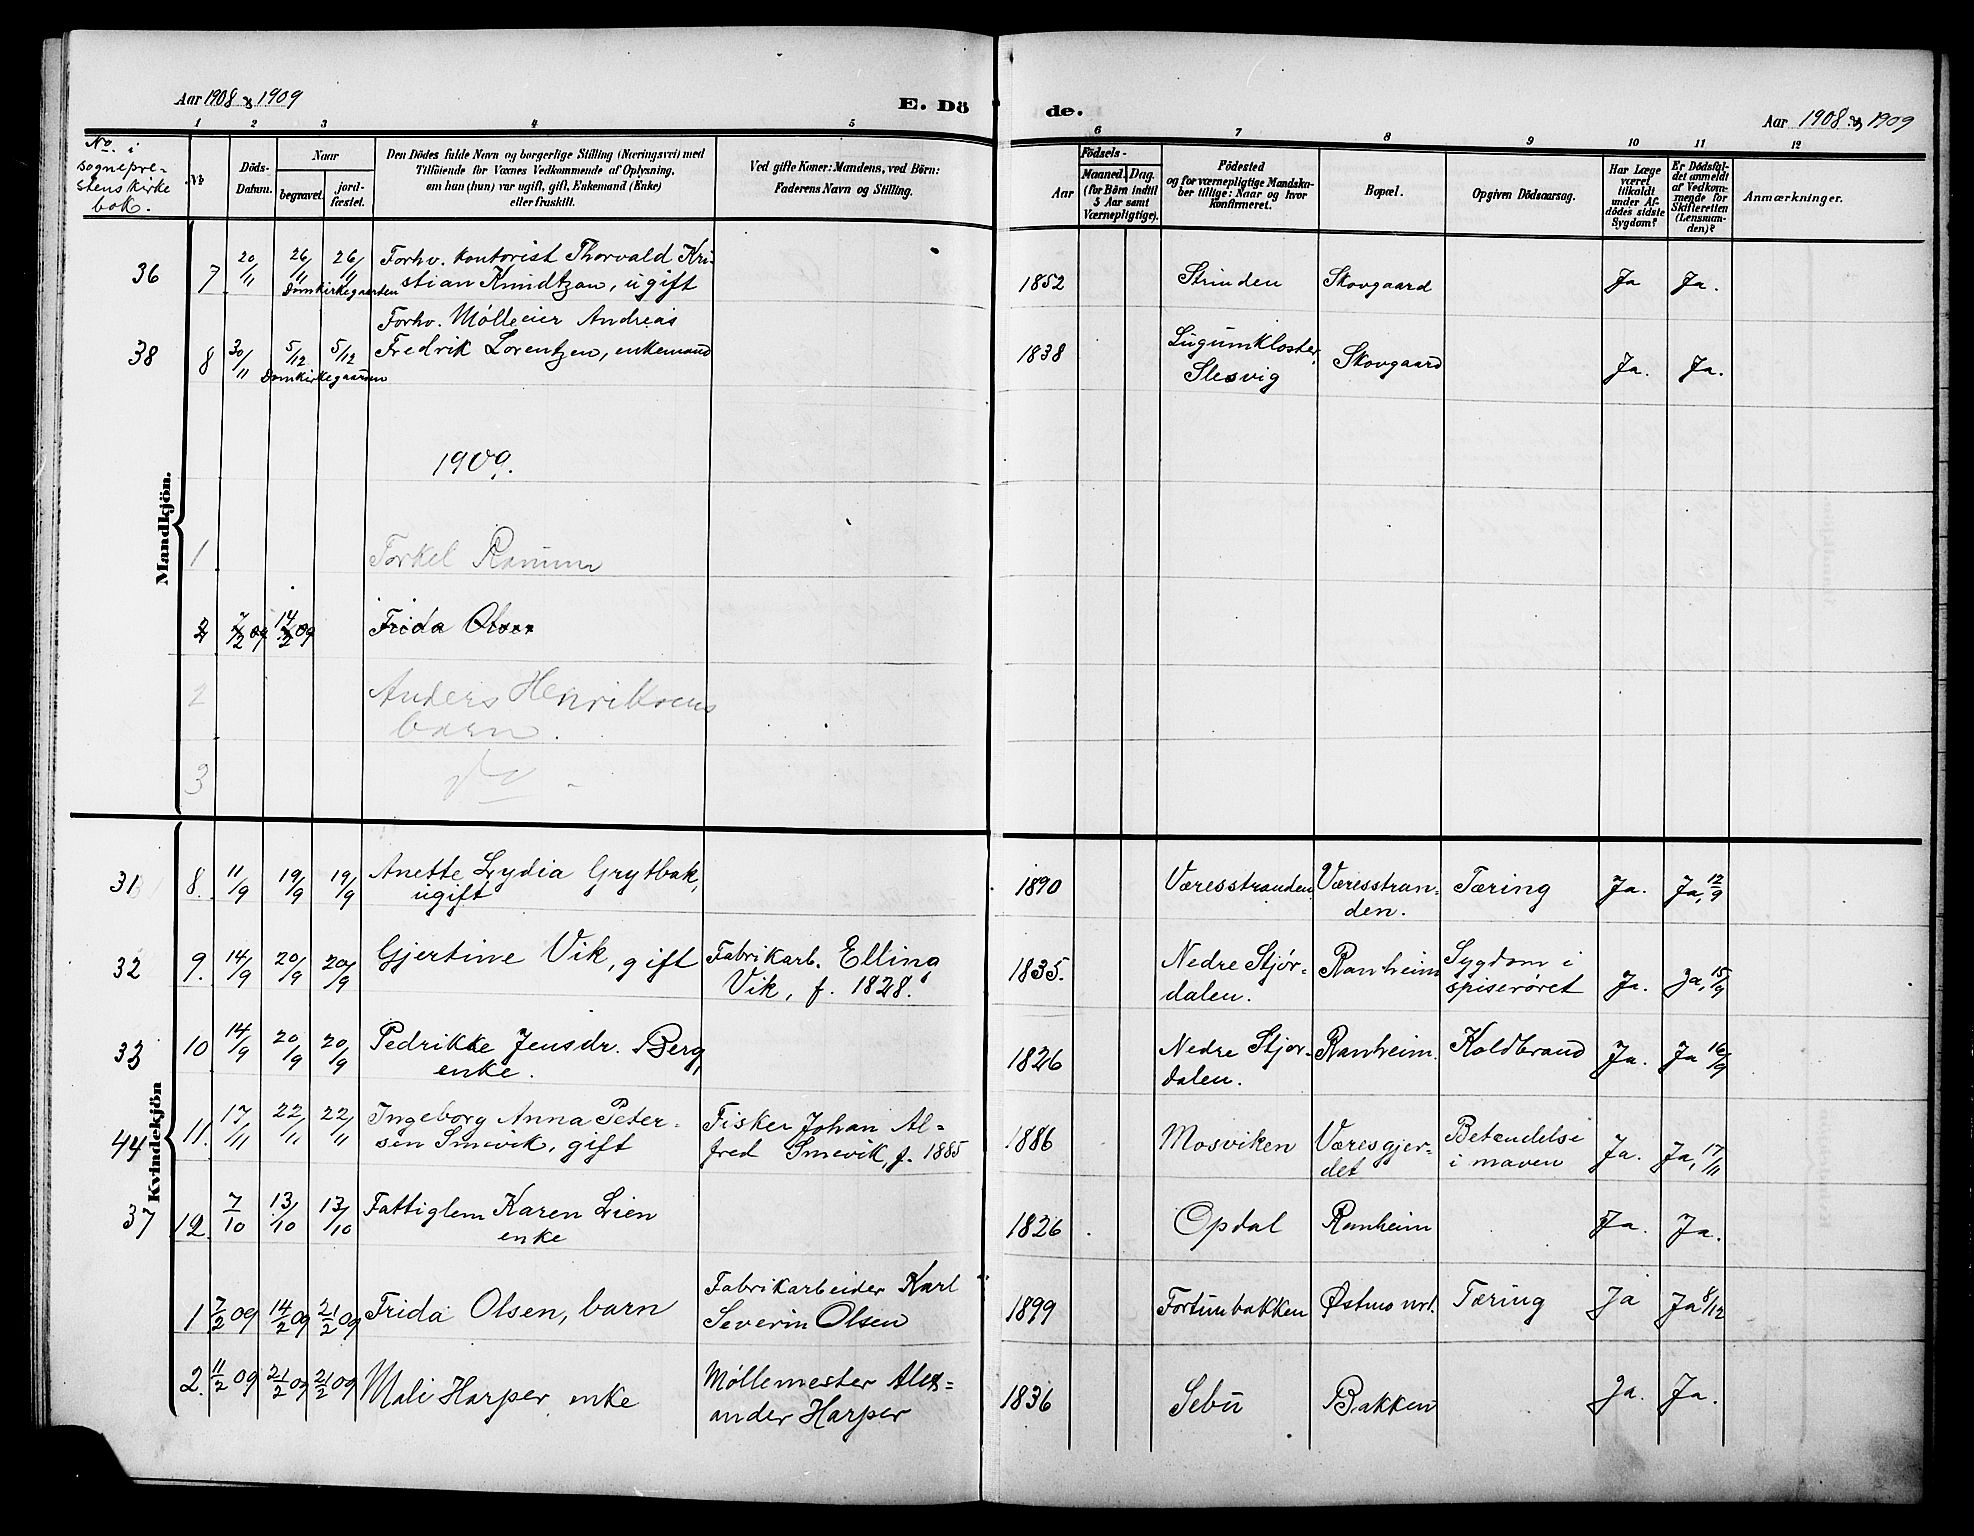 Aar 1908 & 1909
E. Dö
de.
Aar 1908 & 1909
1 2 3 4 5 6 7 8 9 10 11 12
No. i
sognepre-
stens kirke
bok.
No
Döds-
Datum.
Naar
begravet.
jord-
fæstet.
Den Dödes fulde Navn og borgerlige Stilling (Næringsvei) med
Tilföiende for Voxnes Vedkommende af Oplysning,
om han (hun) var ugift, gift, Enkemand (Enke)
eller fraskilt.
Ved gifte Koner: Mandens, ved Börn:
Faderens Navn og Stilling.
Födsels-
Aar
Maaned. Dag.
(for Börn indtil
5 Aar samt
Værnepligtige).
Födested
og for værnepligtige Mandska-
ber tillige: Naar og hvor
konfirmeret.
Bopæl.
Opgiven Dödsaarsag.
Har Læge
været
tilkaldt
under Af-
dödes sidste
Sygdom?
Er Dödsfal-
det anmeldt
af Vedkom-
mende for
Skifteretten
(Lensman-
den)?
Anmærkninger.
Mandkjön.
36 7 20/11 26/11 26/11 Forhv. kontorist Thorvald Kri-
Domkirkegaarden stian Knudtzon, ugift 1852 Strinden Skovgaard Ja Ja.
Forhv. Mølleeier Andreas
38 8 30/11 5/12 5/12 Fredrik Lorentzen, enkemand 1838 Lügumkloster, Skovgaard Ja. Ja.
Domkirkegaarden Slesvig
1909.
1 Torkel Ranum
2 7/2 09 14/2 09 Frida Olsen
2 Anders Henriksens
barn.
3 do -
Kvindekjön
31 8. 11/9 19/9 19/9 Anette Lydia Grytbak, 1890 Væresstranden Væresstran- Tæring Ja. Ja, 12/9
ugift den.
32 9. 14/9 20/9 20/9 Gjertine Vik, gift Fabrikarb. Elling 1835. Nedre Stjør- Ranheim Sygdom i Ja. Ja, 15/9
Vik, f. 1828. dalen. spiserøret
33 10 14/9 20/9 20/9 Pedrikke Jensdr. Berg, 1826 Nedre Stjør- Ranheim. Koldbrand Ja. Ja 16/9
enke. dalen.
44 11. 17/11 22/11 22/11 Ingeborg Anna Peter- Fisker Johan Al- 1886 Mosviken Væresgjer- Betændelse Ja. Ja, 17/11
sen Smevik, gift fred Smevik, f. 1885 det i maven
37 12. 7/10 13/10 13/10 Fattiglem Karen Lien 1826 Opdal Ranheim Ja. Ja.
enke
Fabrikarbeider Karl
1 7/2 09 14/2 09 21/2 09 Frida Olsen, barn Severin Olsen 1899 Fortunbakken Østmo nrl. Tæring Ja Ja 8/12
2. 11/2 09 21/2 09 21/2 09 Mali Harper, enke Møllemester Alex- 1836 Sebu Bakken Ja. Ja.
ander Harper